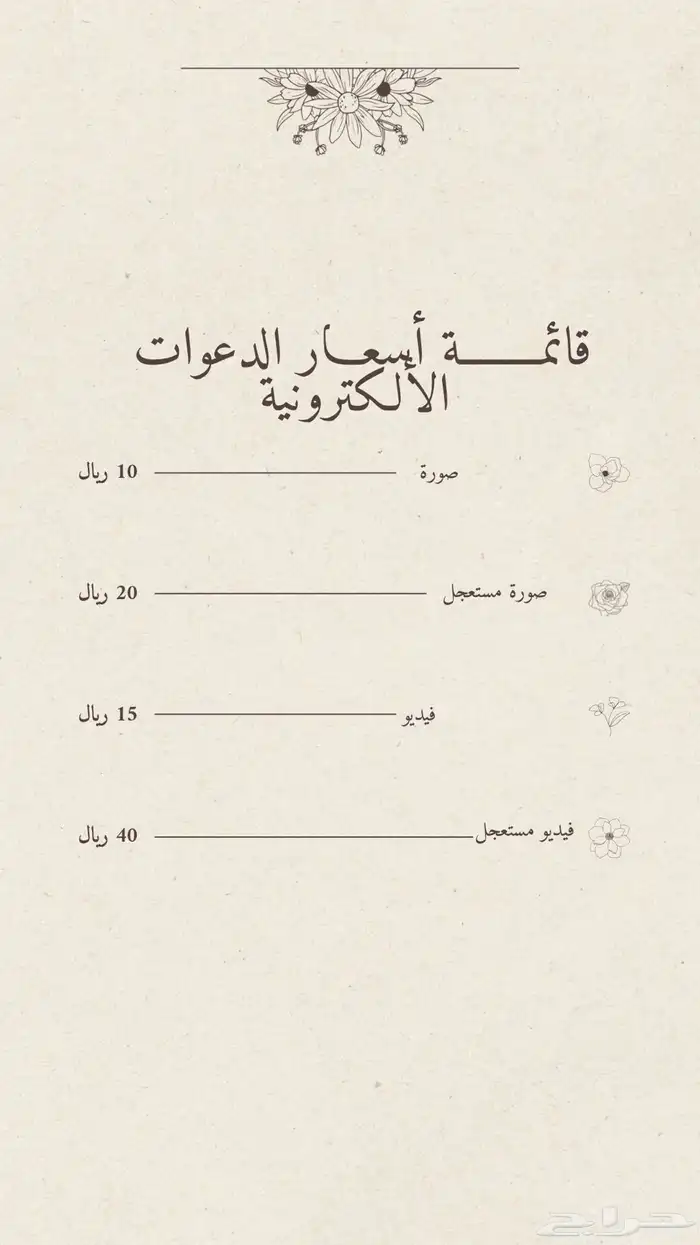 قائمـــة أسعـار الدعوات
الألكترونية
صورة 10 ريال
صورة مستعجل 20 ريال
فيديو 15 ريال
فيديو مستعجل 40 ريال
حراج